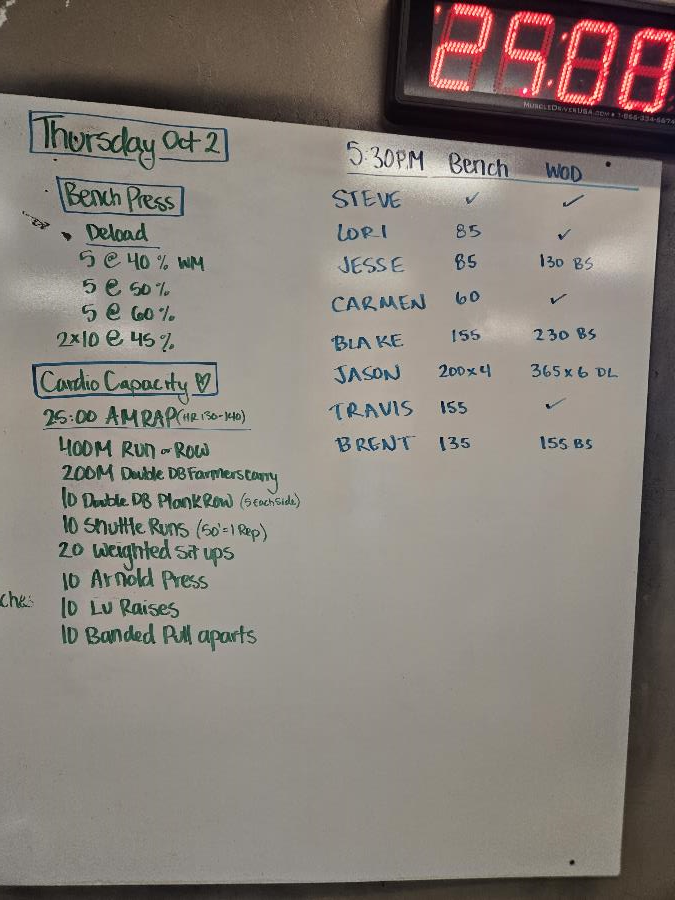 25:00
MUSCLEDRIVERUSA.COM • 1-866-334-5674
Thursday Oct 2
Bench Press
Deload
5 @ 40% WM
5 @ 50%
5 @ 60%
2x10 @ 45%
Cardio Capacity
25:00 AMRAP (HR 130-140)
400M Run or Row
200M Double DB Farmers carry
10 Double DB Plank Row (5 each side)
10 Shuttle Runs (50'=1 Rep)
20 Weighted sit ups
10 Arnold Press
10 Lu Raises
10 Banded Pull aparts
5:30PM Bench WOD
STEVE ✓ ✓
LORI 85 ✓
JESSE 85 130 BS
CARMEN 60 ✓
BLAKE 155 230 BS
JASON 200x4 365x6 DL
TRAVIS 155 ✓
BRENT 135 155 BS